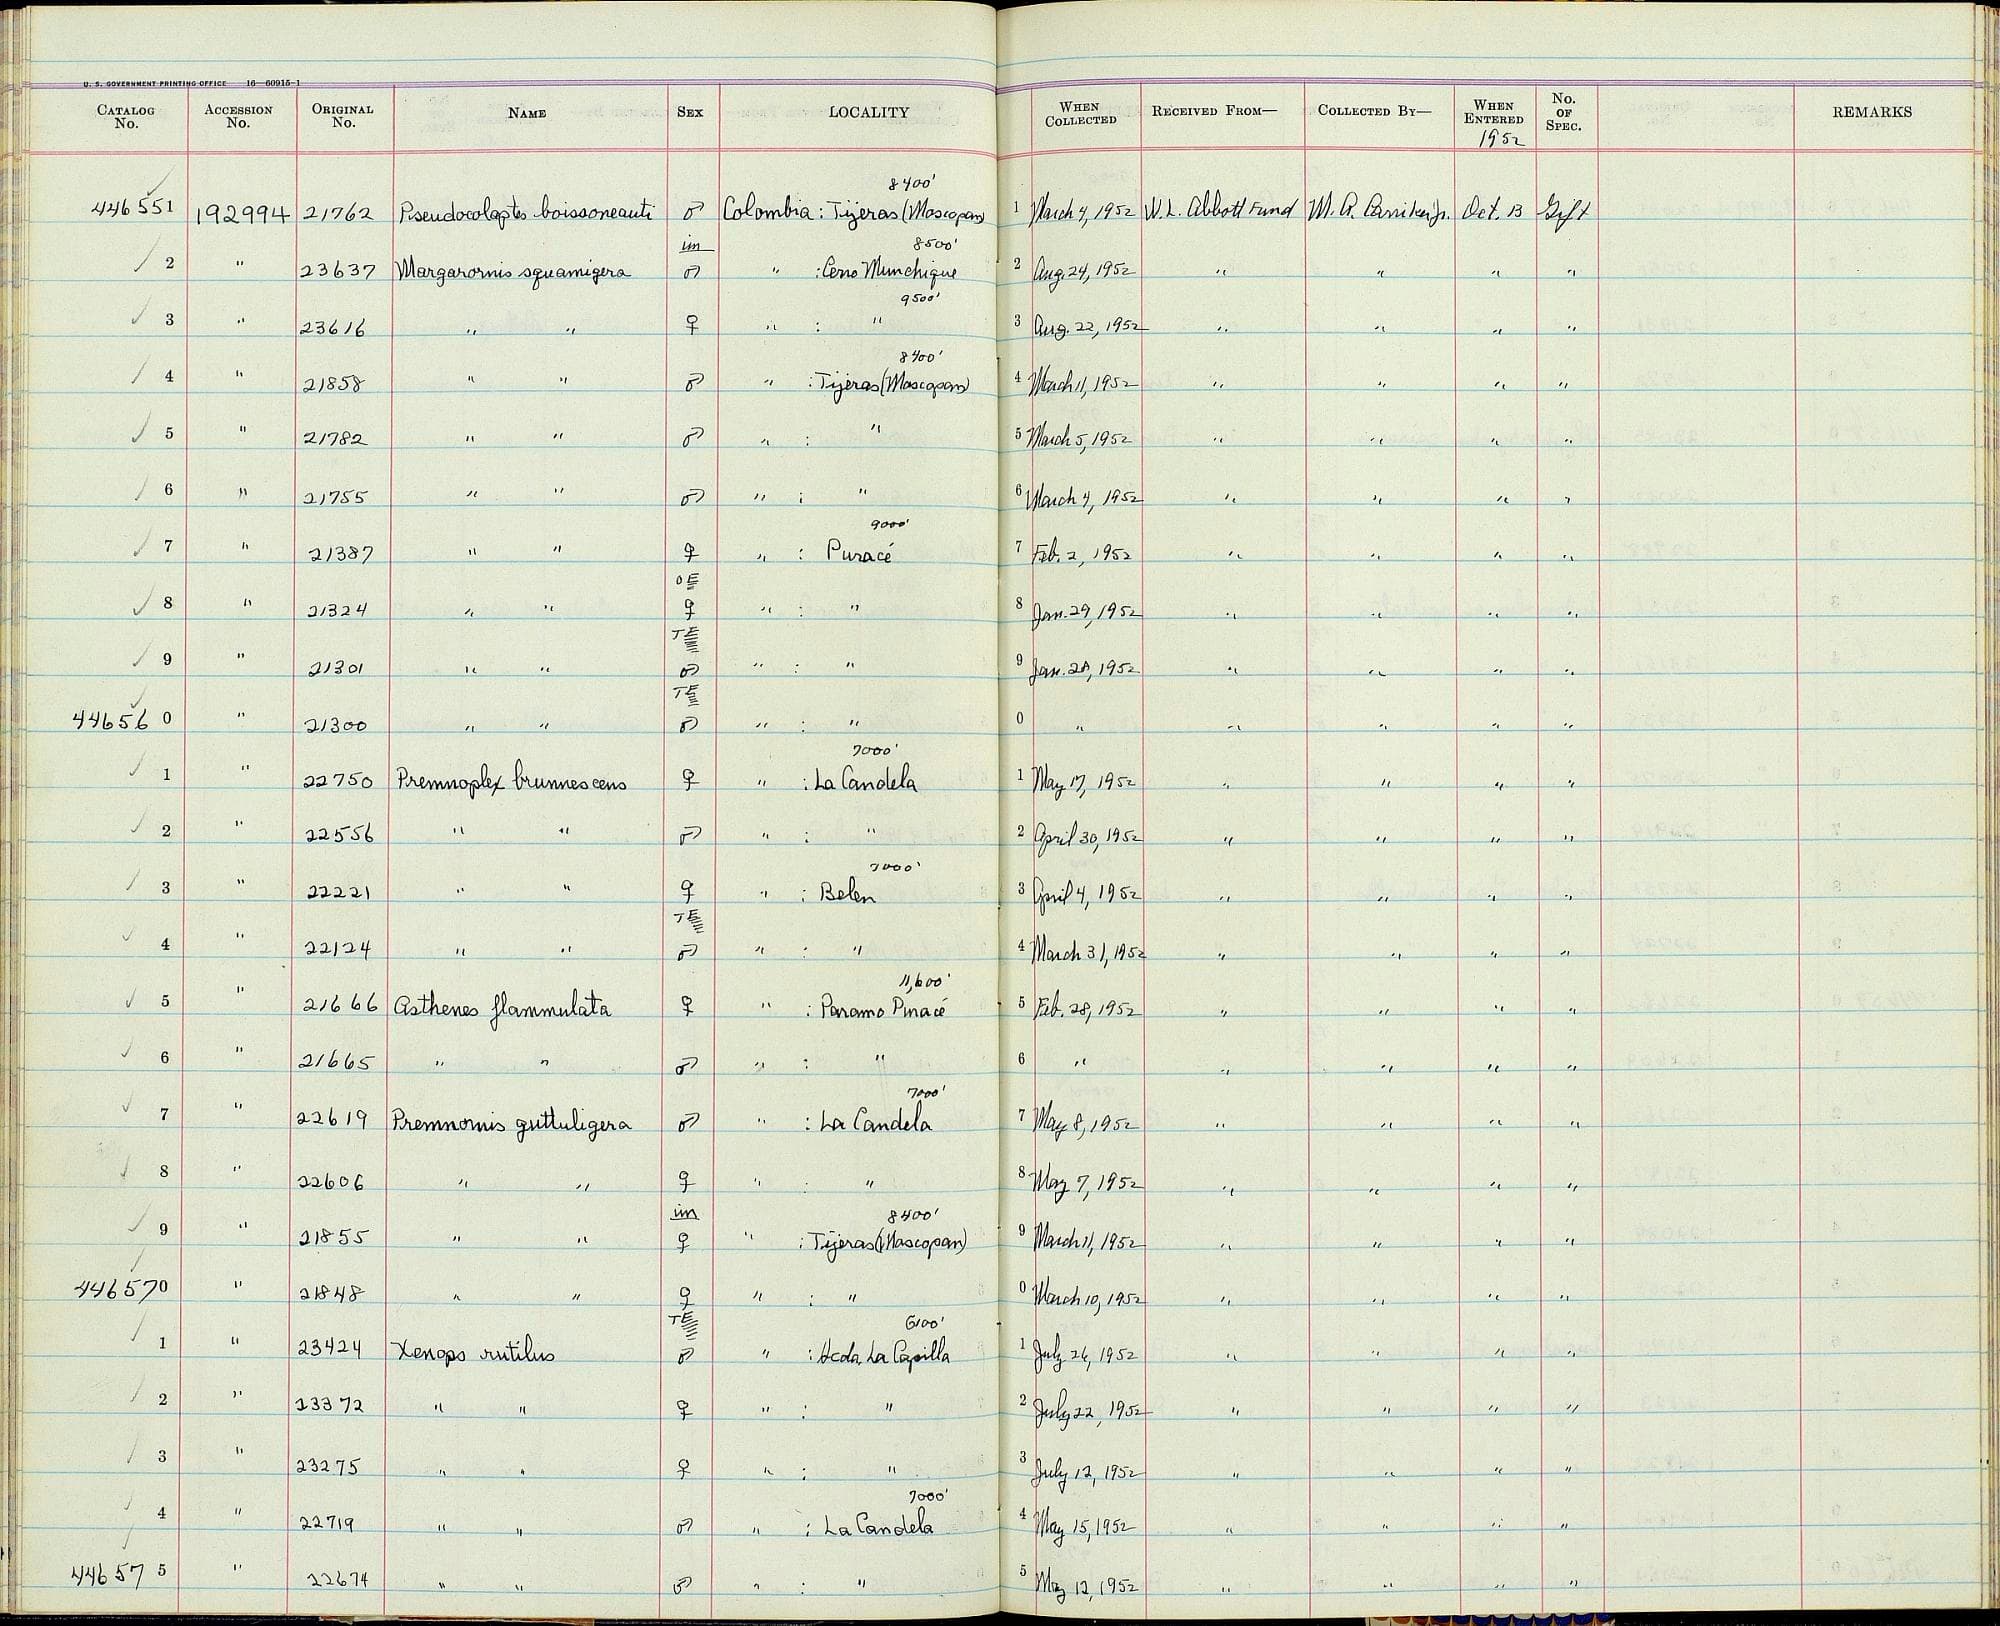 U. S. GOVERNMENT PRINTING OFFICE 16—60915-1
CATALOG No. ACCESSION No. ORIGINAL No. NAME SEX LOCALITY WHEN COLLECTED RECEIVED FROM— COLLECTED BY— WHEN ENTERED 1952 No. OF SPEC. REMARKS
8400'
446551 192994 21762 Pseudocolaptes boissoneauti ♂ Colombia : Tijeras (Moscopan) 1 March 4, 1952 W. L. Abbott Fund M. A. Carriker, Jr. Oct. 13 Gift
im 8500'
2 " 23637 Margarornis squamigera ♂ " : Cerro Munchique 2 Aug. 24, 1952 " " " "
9500'
3 " 23616 " " ♀ " : " 3 Aug. 22, 1952 " " " "
8400'
4 " 21858 " " ♂ " : Tijeras (Moscopan) 4 March 11, 1952 " " " "
5 " 21782 " " ♂ " : " 5 March 5, 1952 " " " "
6 " 21755 " " ♂ " : " 6 March 4, 1952 " " " "
9000'
7 " 21387 " " ♀ " : Puracé 7 Feb. 2, 1952 " " " "
8 " 21324 " " ♀ " : " 8 Jan. 29, 1952 " " " "
9 " 21301 " " ♂ " : " 9 Jan. 28, 1952 " " " "
446560 " 21300 " " ♂ " : " 0 " " " " "
7000'
1 " 22750 Premnoplex brunnescens ♀ " : La Candela 1 May 17, 1952 " " " "
2 " 22556 " " ♂ " : " 2 April 30, 1952 " " " "
7000'
3 " 22221 " " ♀ " : Belen 3 April 4, 1952 " " " "
4 " 22124 " " ♂ " : " 4 March 31, 1952 " " " "
11,600'
5 " 21666 Asthenes flammulata ♀ " : Paramo Puracé 5 Feb. 28, 1952 " " " "
6 " 21665 " " ♂ " : " 6 " " " " "
7000'
7 " 22619 Premnornis guttuligera ♂ " : La Candela 7 May 8, 1952 " " " "
8 " 22606 " " ♀ " : " 8 May 7, 1952 " " " "
im 8400'
9 " 21855 " " ♀ " : Tijeras (Moscopan) 9 March 11, 1952 " " " "
446570 " 21848 " " ♀ " : " 0 March 10, 1952 " " " "
6100'
1 " 23424 Xenops rutilus ♂ " : Hcda. La Capilla 1 July 26, 1952 " " " "
2 " 23372 " " ♀ " : " 2 July 22, 1952 " " " "
3 " 23275 " " ♀ " : " 3 July 12, 1952 " " " "
7000'
4 " 22719 " " ♂ " : La Candela 4 May 15, 1952 " " " "
446575 " 22674 " " ♂ " : " 5 May 12, 1952 " " " "